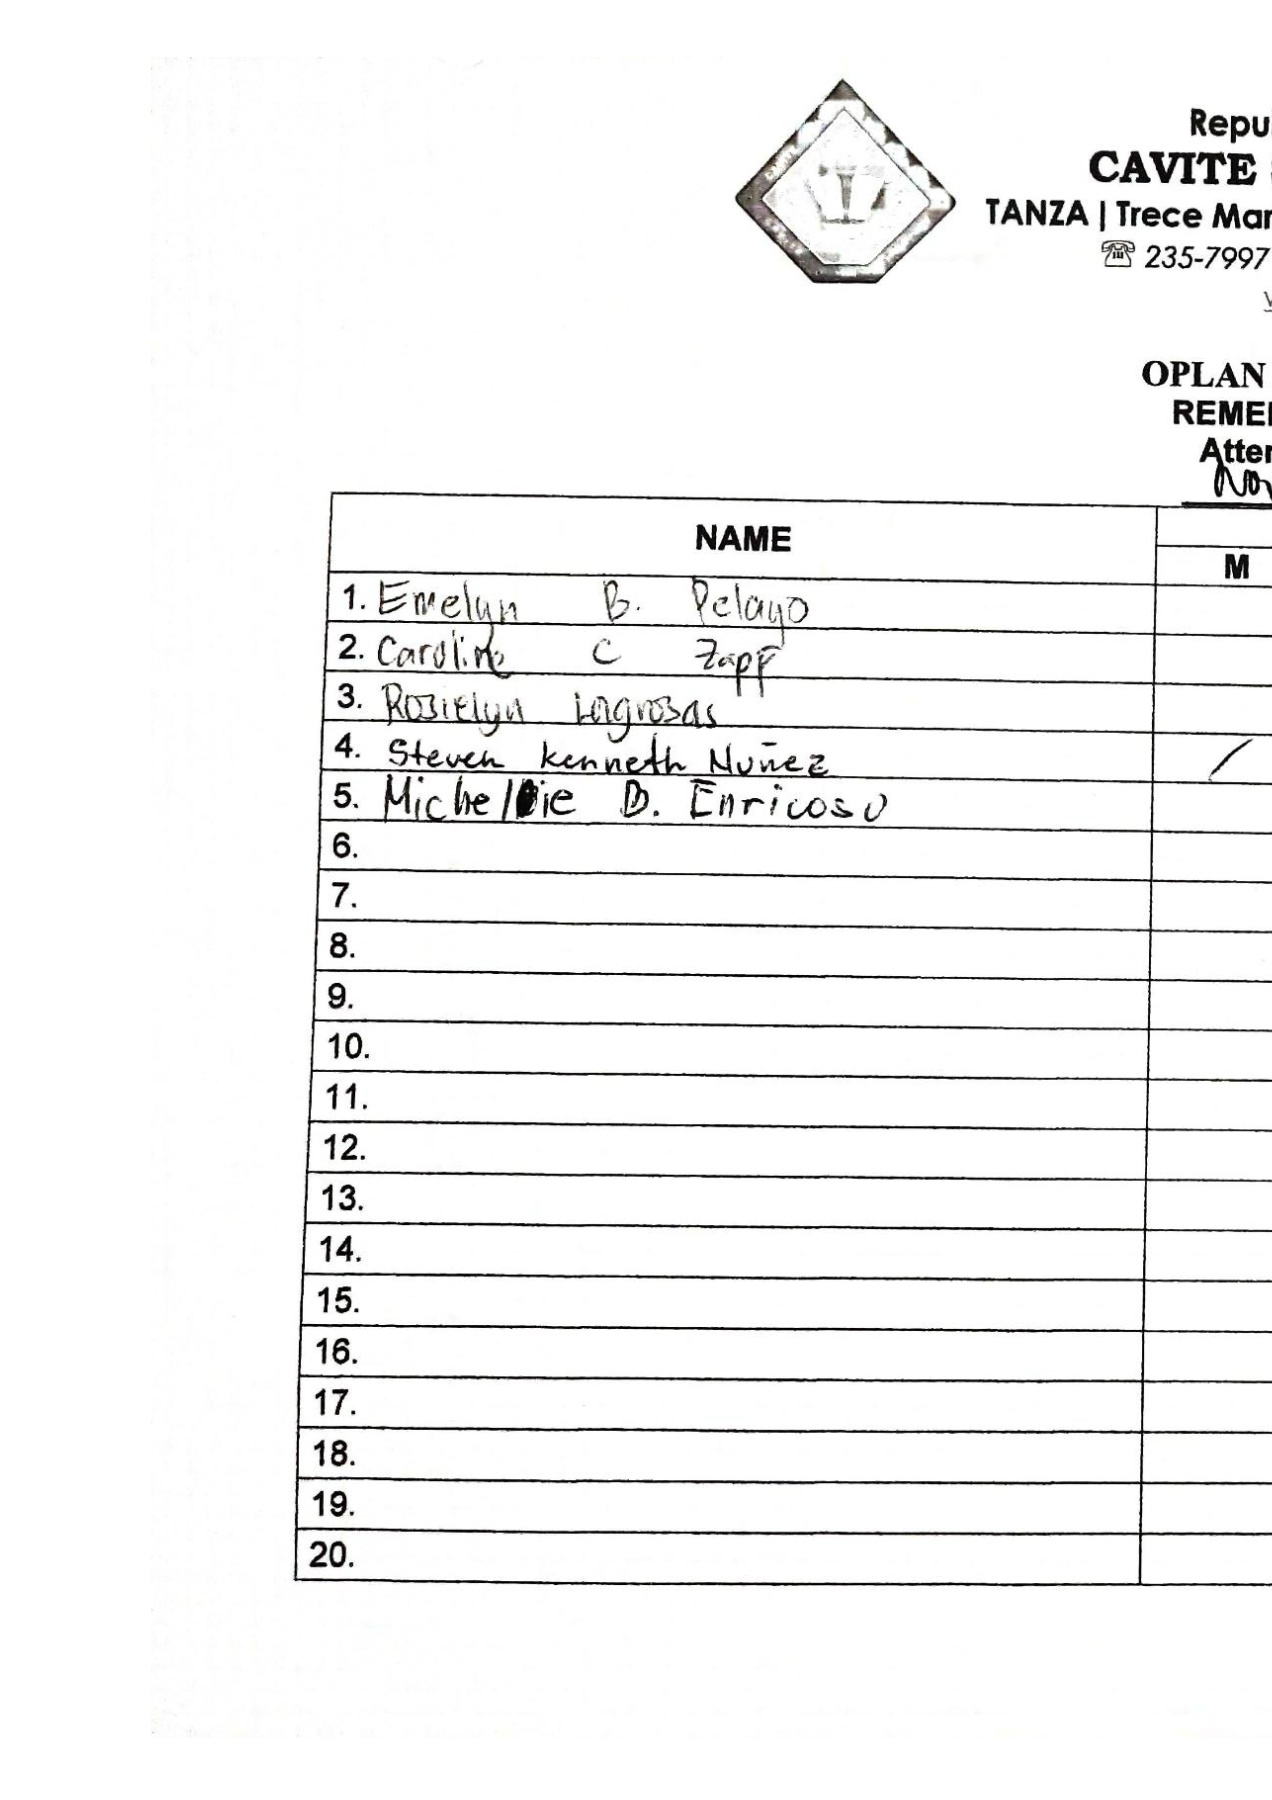 Repu
CAVITE
TANZA | Trece Mar
☎ 235-7997
OPLAN
REME
Atter
Nov
NAME
M
1. Emelyn B. Pelayo
2. Caroline C Zapf
3. Rosielyn Lagrosas
4. Steven Kenneth Nuñez /
5. Michellie B. Enricoso
6.
7.
8.
9.
10.
11.
12.
13.
14.
15.
16.
17.
18.
19.
20.